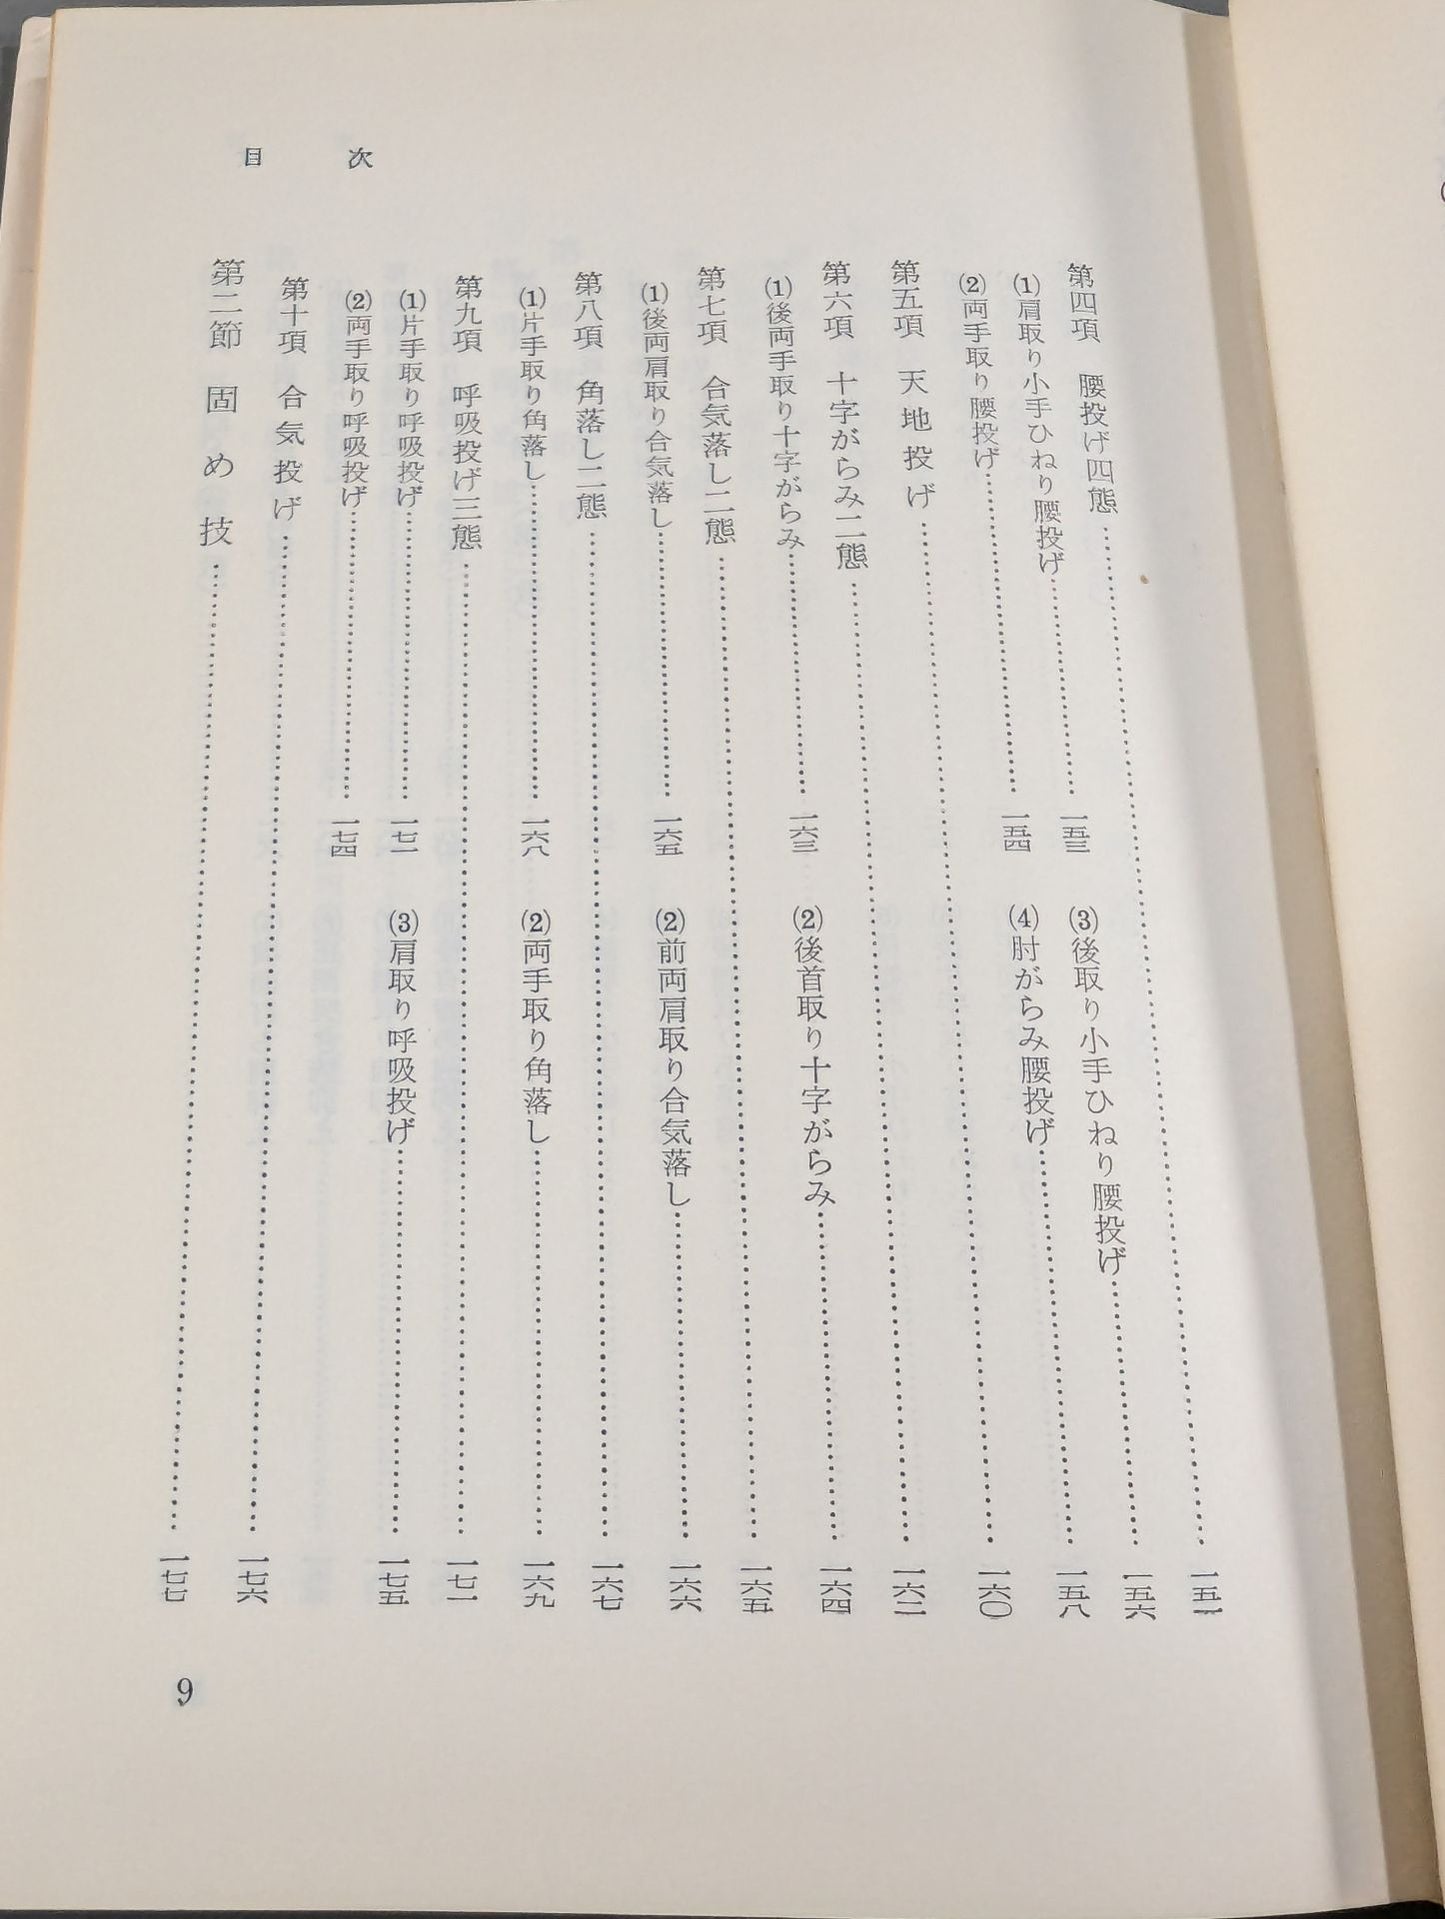 目次
第四項 腰投げ四態……一五二
(1)肩取り小手ひねり腰投げ……一五三
(3)後取り小手ひねり腰投げ……一五六
(2)両手取り腰投げ……一五四
(4)肘がらみ腰投げ……一五八
第五項 天地投げ……一六〇
第六項 十字がらみ二態……一六二
(1)後両手取り十字がらみ……一六三
(2)後首取り十字がらみ……一六四
第七項 合気落し二態……一六五
(1)後両肩取り合気落し……一六五
(2)前両肩取り合気落し……一六六
第八項 角落し二態……一六七
(1)片手取り角落し……一六八
(2)両手取り角落し……一六九
第九項 呼吸投げ三態……一七一
(1)片手取り呼吸投げ……一七一
(3)肩取り呼吸投げ……一七五
(2)両手取り呼吸投げ……一七四
第十項 合気投げ……一七六
第二節 固め技……一七七
9